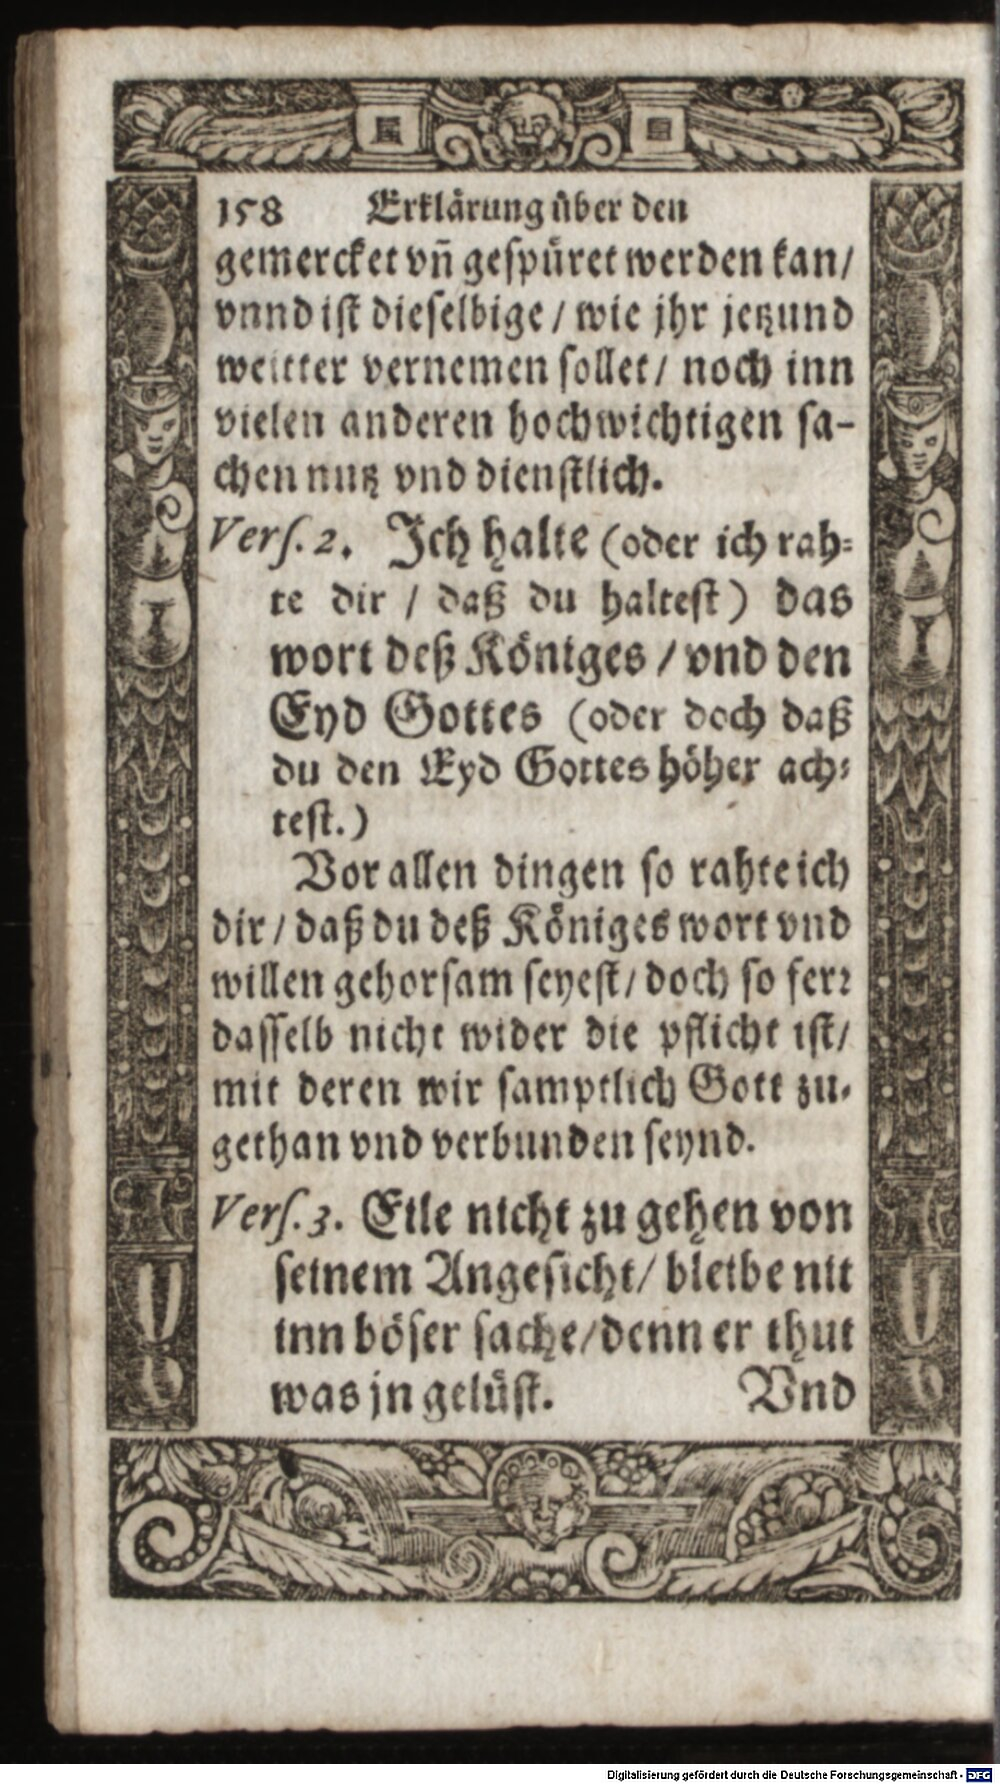 158 Erklärung über den
gemercket vñ gespüret werden kan/
vnnd ist dieselbige / wie jhr jetzund
weitter vernemen sollet / noch inn
vielen anderen hochwichtigen sa-
chen nutz vnd dienstlich.
Vers. 2. Ich halte (oder ich rah-
te dir / daß du haltest) das
wort deß Königes / vnd den
Eyd Gottes (oder doch daß
du den Eyd Gottes höher ach-
test.)
Vor allen dingen so rahte ich
dir / daß du deß Königes wort vnd
willen gehorsam seyest / doch so ferr
dasselb nicht wider die pflicht ist /
mit deren wir samptlich Gott zu-
gethan vnd verbunden seynd.
Vers. 3. Eile nicht zu gehen von
seinem Angesicht / bleibe nit
inn böser sache / denn er thut
was jn gelüst. Vnd
Digitalisierung gefördert durch die Deutsche Forschungsgemeinschaft - DFG